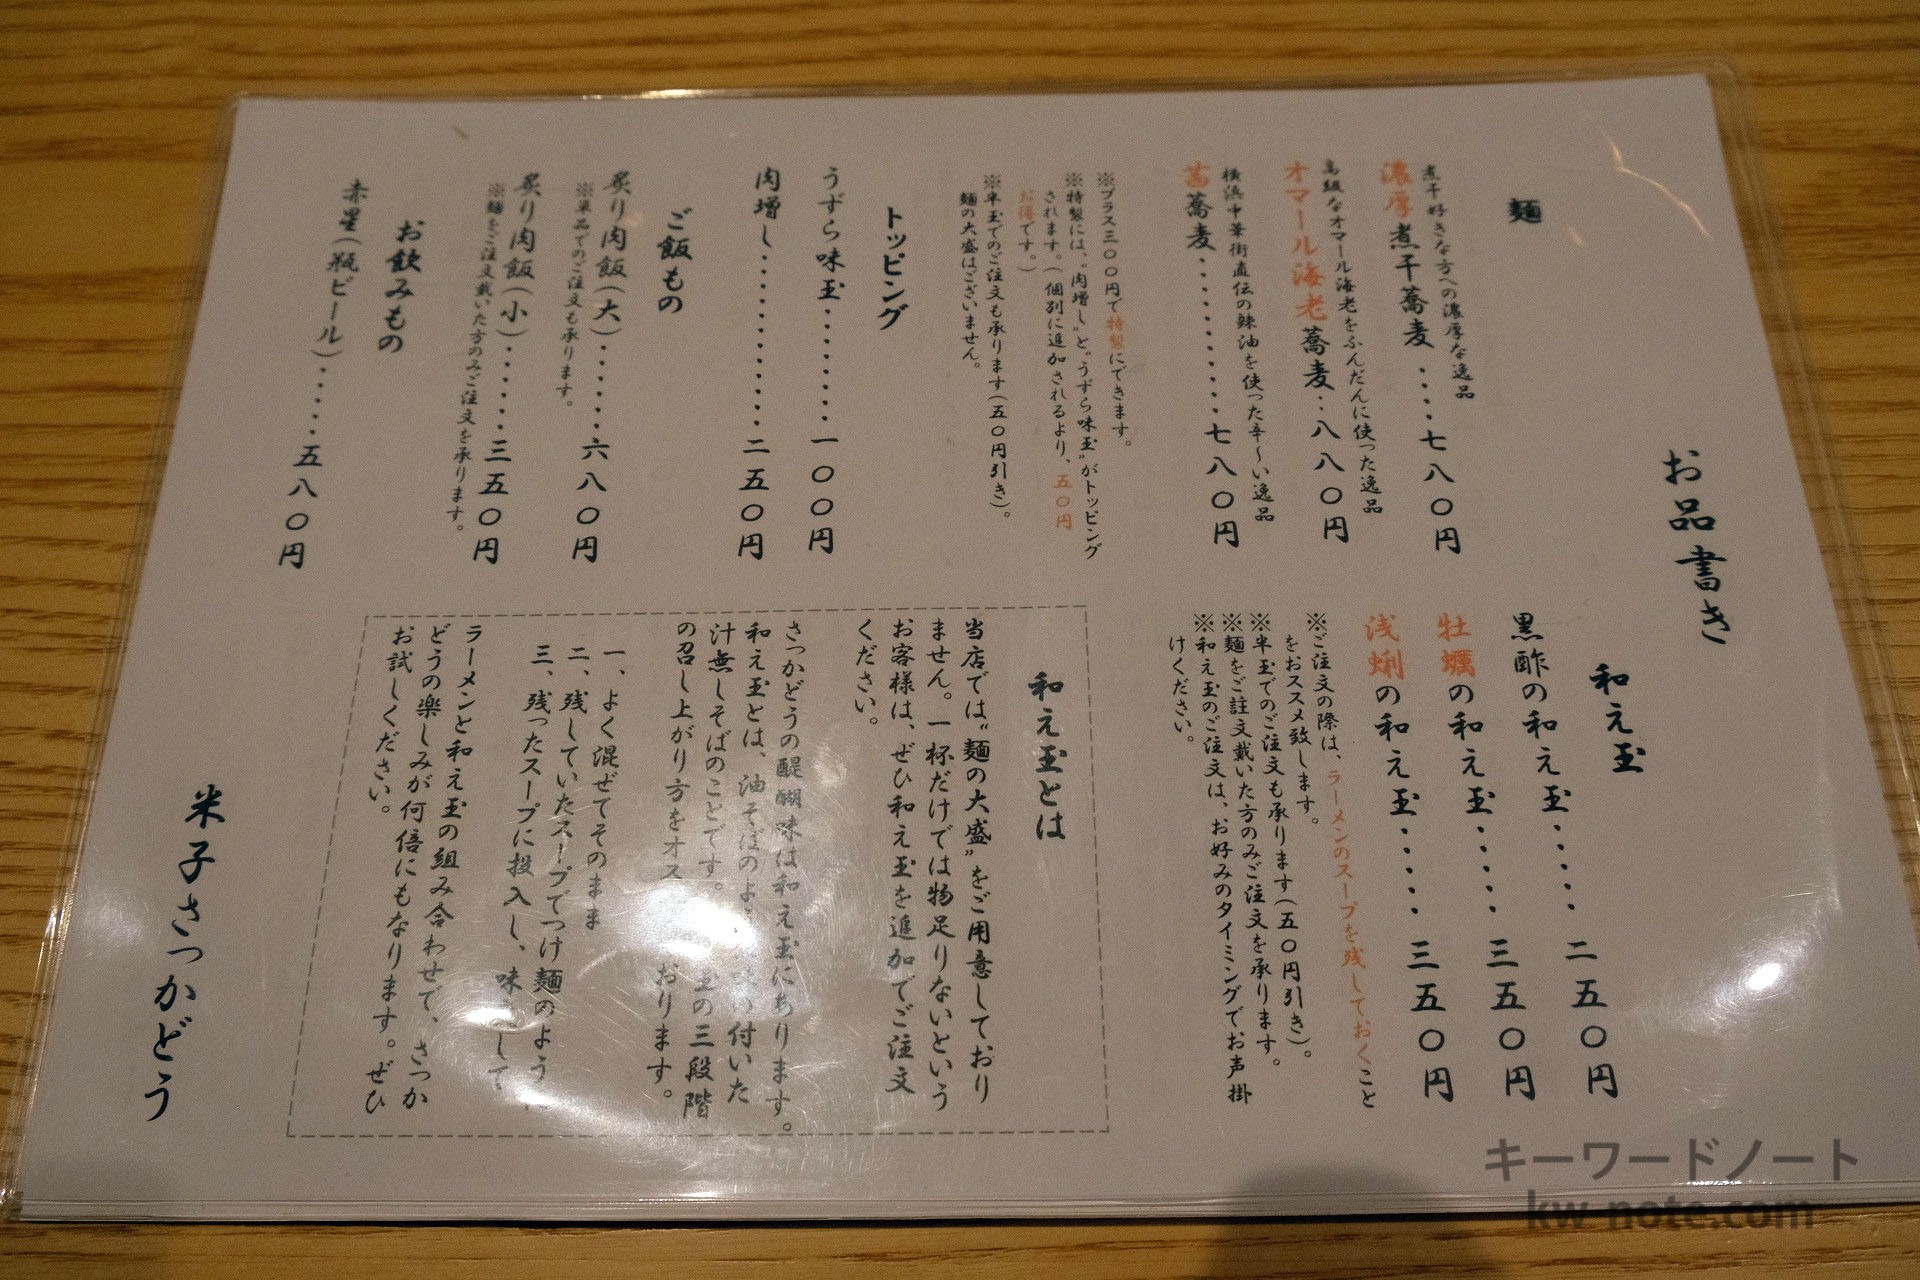 お品書き
麺
煮干好きな方への濃厚な逸品
濃厚煮干蕎麦・・・・七八〇円
高級なオマール海老をふんだんに使った逸品
オマール海老蕎麦・・八八〇円
横浜中華街直伝の辣油を使った辛〜い逸品
蕎麦・・・・・・・・・・七八〇円
※プラス三〇〇円で特製にできます。
※特製には、“肉増し”と“うずら味玉”がトッピング
されます。(個別に追加されるより、五〇円
お得です。)
※半玉でのご注文も承ります(五〇円引き)。
麺の大盛はございません。
トッピング
うずら味玉・・・・・・・・一〇〇円
肉増し・・・・・・・・・・・二五〇円
ご飯もの
炙り肉飯(大)・・・・・・六八〇円
※単品でのご注文も承ります。
炙り肉飯(小)・・・・・・三五〇円
※麺をご注文戴いた方のみご注文を承ります。
お飲みもの
赤星(瓶ビール)・・・・・五八〇円
和え玉
黒酢の和え玉・・・・・二五〇円
牡蠣の和え玉・・・・・三五〇円
浅蜊の和え玉・・・・・三五〇円
※ご注文の際は、ラーメンのスープを残しておくこと
をおススメ致します。
※半玉でのご注文も承ります(五〇円引き)。
※麺をご註文戴いた方のみご注文を承ります。
※和え玉のご注文は、お好みのタイミングでお声掛
けください。
和え玉とは
当店では“麺の大盛”をご用意しており
ません。一杯だけでは物足りないという
お客様は、ぜひ和え玉を追加でご注文
ください。
さっかどうの醍醐味は和え玉にあります。
和え玉とは、油そばのよ 付いた
汁無しそばのことです。 玉の三段階
の召し上がり方をオス おります。
一、よく混ぜてそのまま
二、残していたスープでつけ麺のように
三、残ったスープに投入し、味 して
ラーメンと和え玉の組み合わせで、さっか
どうの楽しみが何倍にもなります。ぜひ
お試しください。
米子さっかどう
キーワードノート
kw-note.com